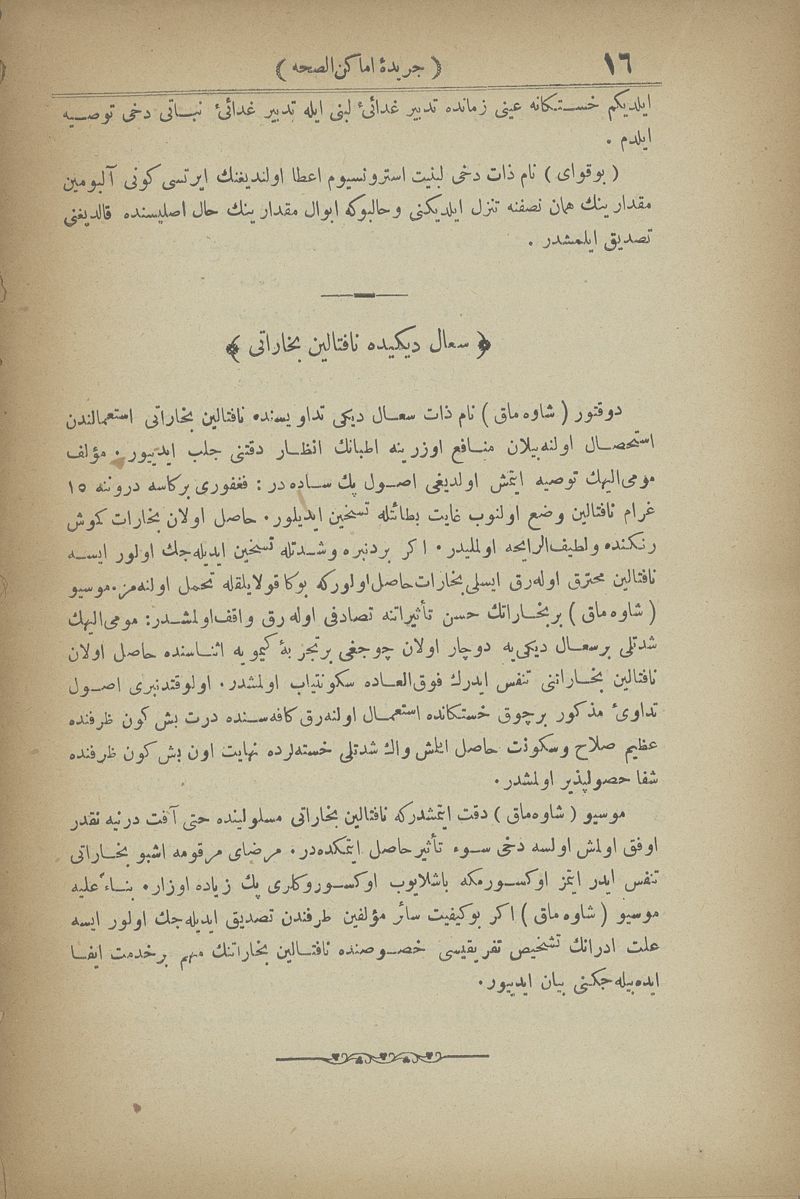 ١٦
( جريدهٔ اماكن‌الصحه )
ايلديكم خستكانه عينى زمانده تدبير غدائىٔ لبنى ايله تدبير غدائىٔ نباتى دخى توصيه
ايلدم .
( بوقواى ) نام ذات دخى لبنيت استرونسيوم اعطا اولنديغنك ايرتسى كونى آلبومين
مقدارينك همان نصفنه تنزل ايلديكنى و حالبوكه ابوال مقدارينك حال اصليسنده قالديغنى
تصديق ايلمشدر .
﴿ سعال ديكيده نافتالين بخاراتى ﴾
دوقتور ( شاوه‌ماق ) نام ذات سعال ديكى تداويسنده نافتالين بخاراتى استعمالندن
استحصال اولنه‌بيلان منافع اوزرينه اطبانك انظار دقتنى جلب ايدييور . مؤلف
مومى‌اليهك توصيه ايتمش اولديغى اصول پك ساده‌در : فغفورى بركاسه دروننه ١٥
غرام نافتالين وضع اولنوب غايت بطائتله تسخين ايديلور . حاصل اولان بخارات كموش
رنكنده و لطيف‌الرايحه اولمليدر . اكر بردنبره و شدتله تسخين ايديله‌جك اولور ايسه
نافتالين محترق اوله‌رق ايسلى بخارات حاصل اولوركه بوكا قولايلقله تحمل اولنه‌مز . موسيو
( شاوه‌ماق ) بربخاراتك حسن تأثيراتنه تصادفى اوله‌رق واقف اولمشدر : مومى‌اليهك
شدتلى برسعال ديكى‌يه دوچار اولان چوجغى برتجربهٔ كيمويه اثناسنده حاصل اولان
نافتالين بخاراتنى تنفس ايدرك فوق‌العاده سكونتياب اولمشدر . اولوقتدنبرى اصول
تداوىٔ مذكور برچوق خستكانده استعمال اولنه‌رق كافه‌سنده درت بش كون ظرفنده
عظيم صلاح و سكونت حاصل ايلمش واك شدتلى خسته‌لرده نهايت اون بش كون ظرفنده
شفا حصولپذير اولمشدر .
موسيو ( شاوه‌ماق ) دقت ايتمشدركه نافتالين بخاراتى مسلولينده حتى آفت درنيه نقدر
اوفق اولمش اولسه دخى سوء تأثير حاصل ايتمكده‌در . مرضاى مرقومه اشبو بخاراتى
تنفس ايدر ايتمز اوكسورمكه باشلايوب اوكسوروكلرى پك زياده اوزار . بناءً عليه
موسيو ( شاوه‌ماق ) اكر بوكيفيت سائر مؤلفين طرفندن تصديق ايديله‌جك اولور ايسه
علت ادرانك تشخيص تفريقيسى خصوصنده نافتالين بخاراتنك مهم برخدمت ايفا
ايده‌بيله‌جكنى بيان ايدييور .